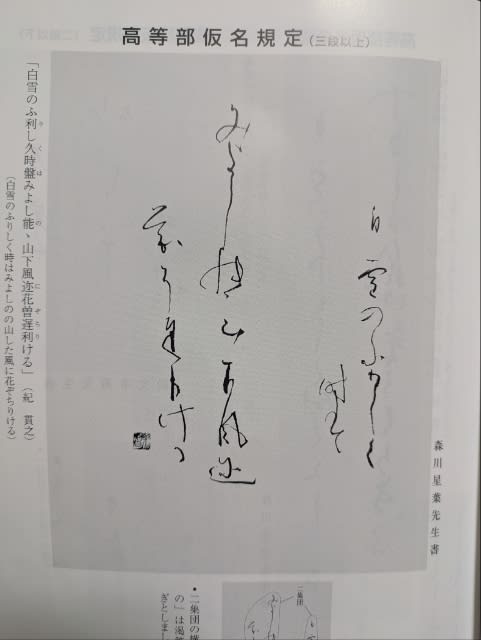 高等部仮名規定（三段以上）
森川星葉先生書
白雪のふ利し久
時盤
みよし能ゝ山下風迩
花曽遅利ける
「白雪のふ利し久時盤みよし能ゝ山下風迩花曽遅利ける」（紀　貫之）
（白雪のふりしく時はみよしのの山した風に花ぞちりける）
二集団
・二集団の構
の」は渇筆
ぎとしまし